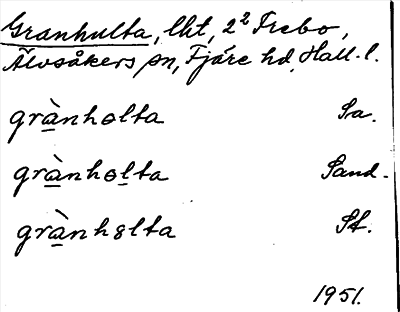 Granhulta, lht, 2² Frebo,
Älvsåkers sn, Fjäre hd, Hall. l.
grànhɵlta Sa.
grànhɵlta Sand.
grành8lta St.
1951.